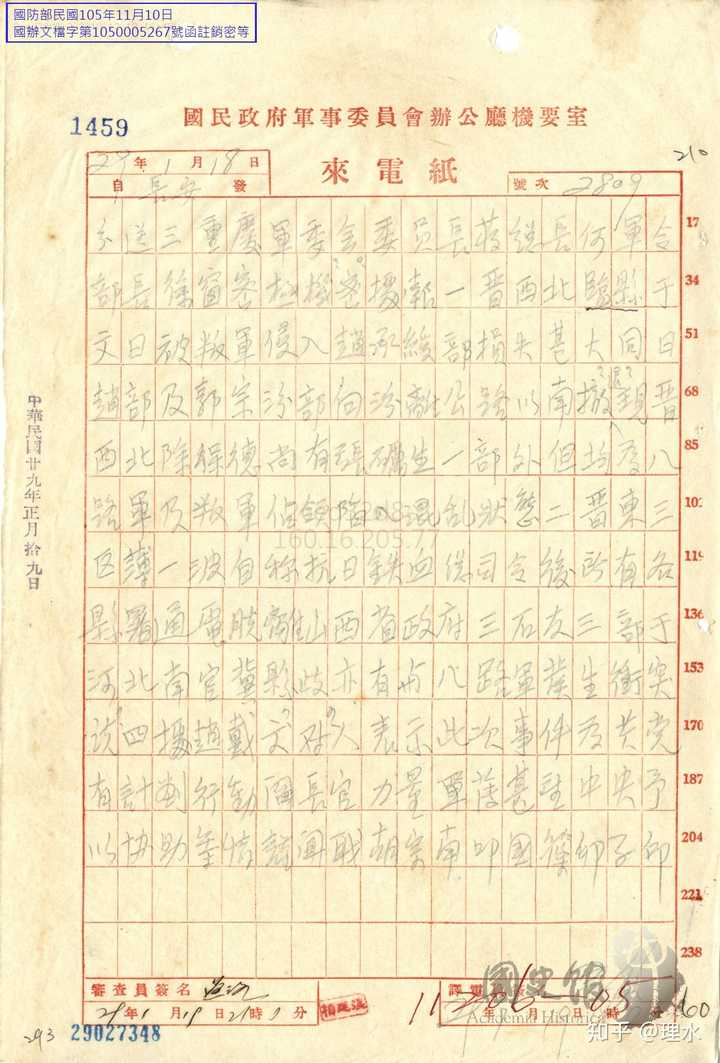 國防部民國105年11月10日
國辦文檔字第1050005267號函註銷密等
1459
國民政府軍事委員會辦公廳機要室
210
29年1月18日
來電紙
自 長安 發
號次 2809
分送三重慶軍委会委員長蔣總長何軍令 17
部長徐密極機密據報一晋西北臨縣于 34
文日被叛軍侵入趙承綬部損失甚大同日 51
趙部及郭宗汾部向汾離公路以南撤退現晋 68
西北除保德尚有張礪生一部外但均為八 85
路軍及叛軍佔領陷入混乱狀態二晋東三 102
区薄一波自称抗日鉄血總司令後所有各 119
縣署通電脱離山西省政府三石友三部于 136
河北南宮冀縣歧亦有与八路軍發生衝突 153
說四據趙戴文对人表示此次事件及共党 170
有計劃行動閻長官力量單薄甚望中央予 187
以協助等情謹聞職胡宗南叩國篠卯子印 204
221
238
160.16.205.77
中華民國廿九年正月拾九日
審查員簽名
29年1月19日21時 分
譯電員簽名
11206
時05分
160
國史館
Academia Historica
293
29027348
知乎 @理水